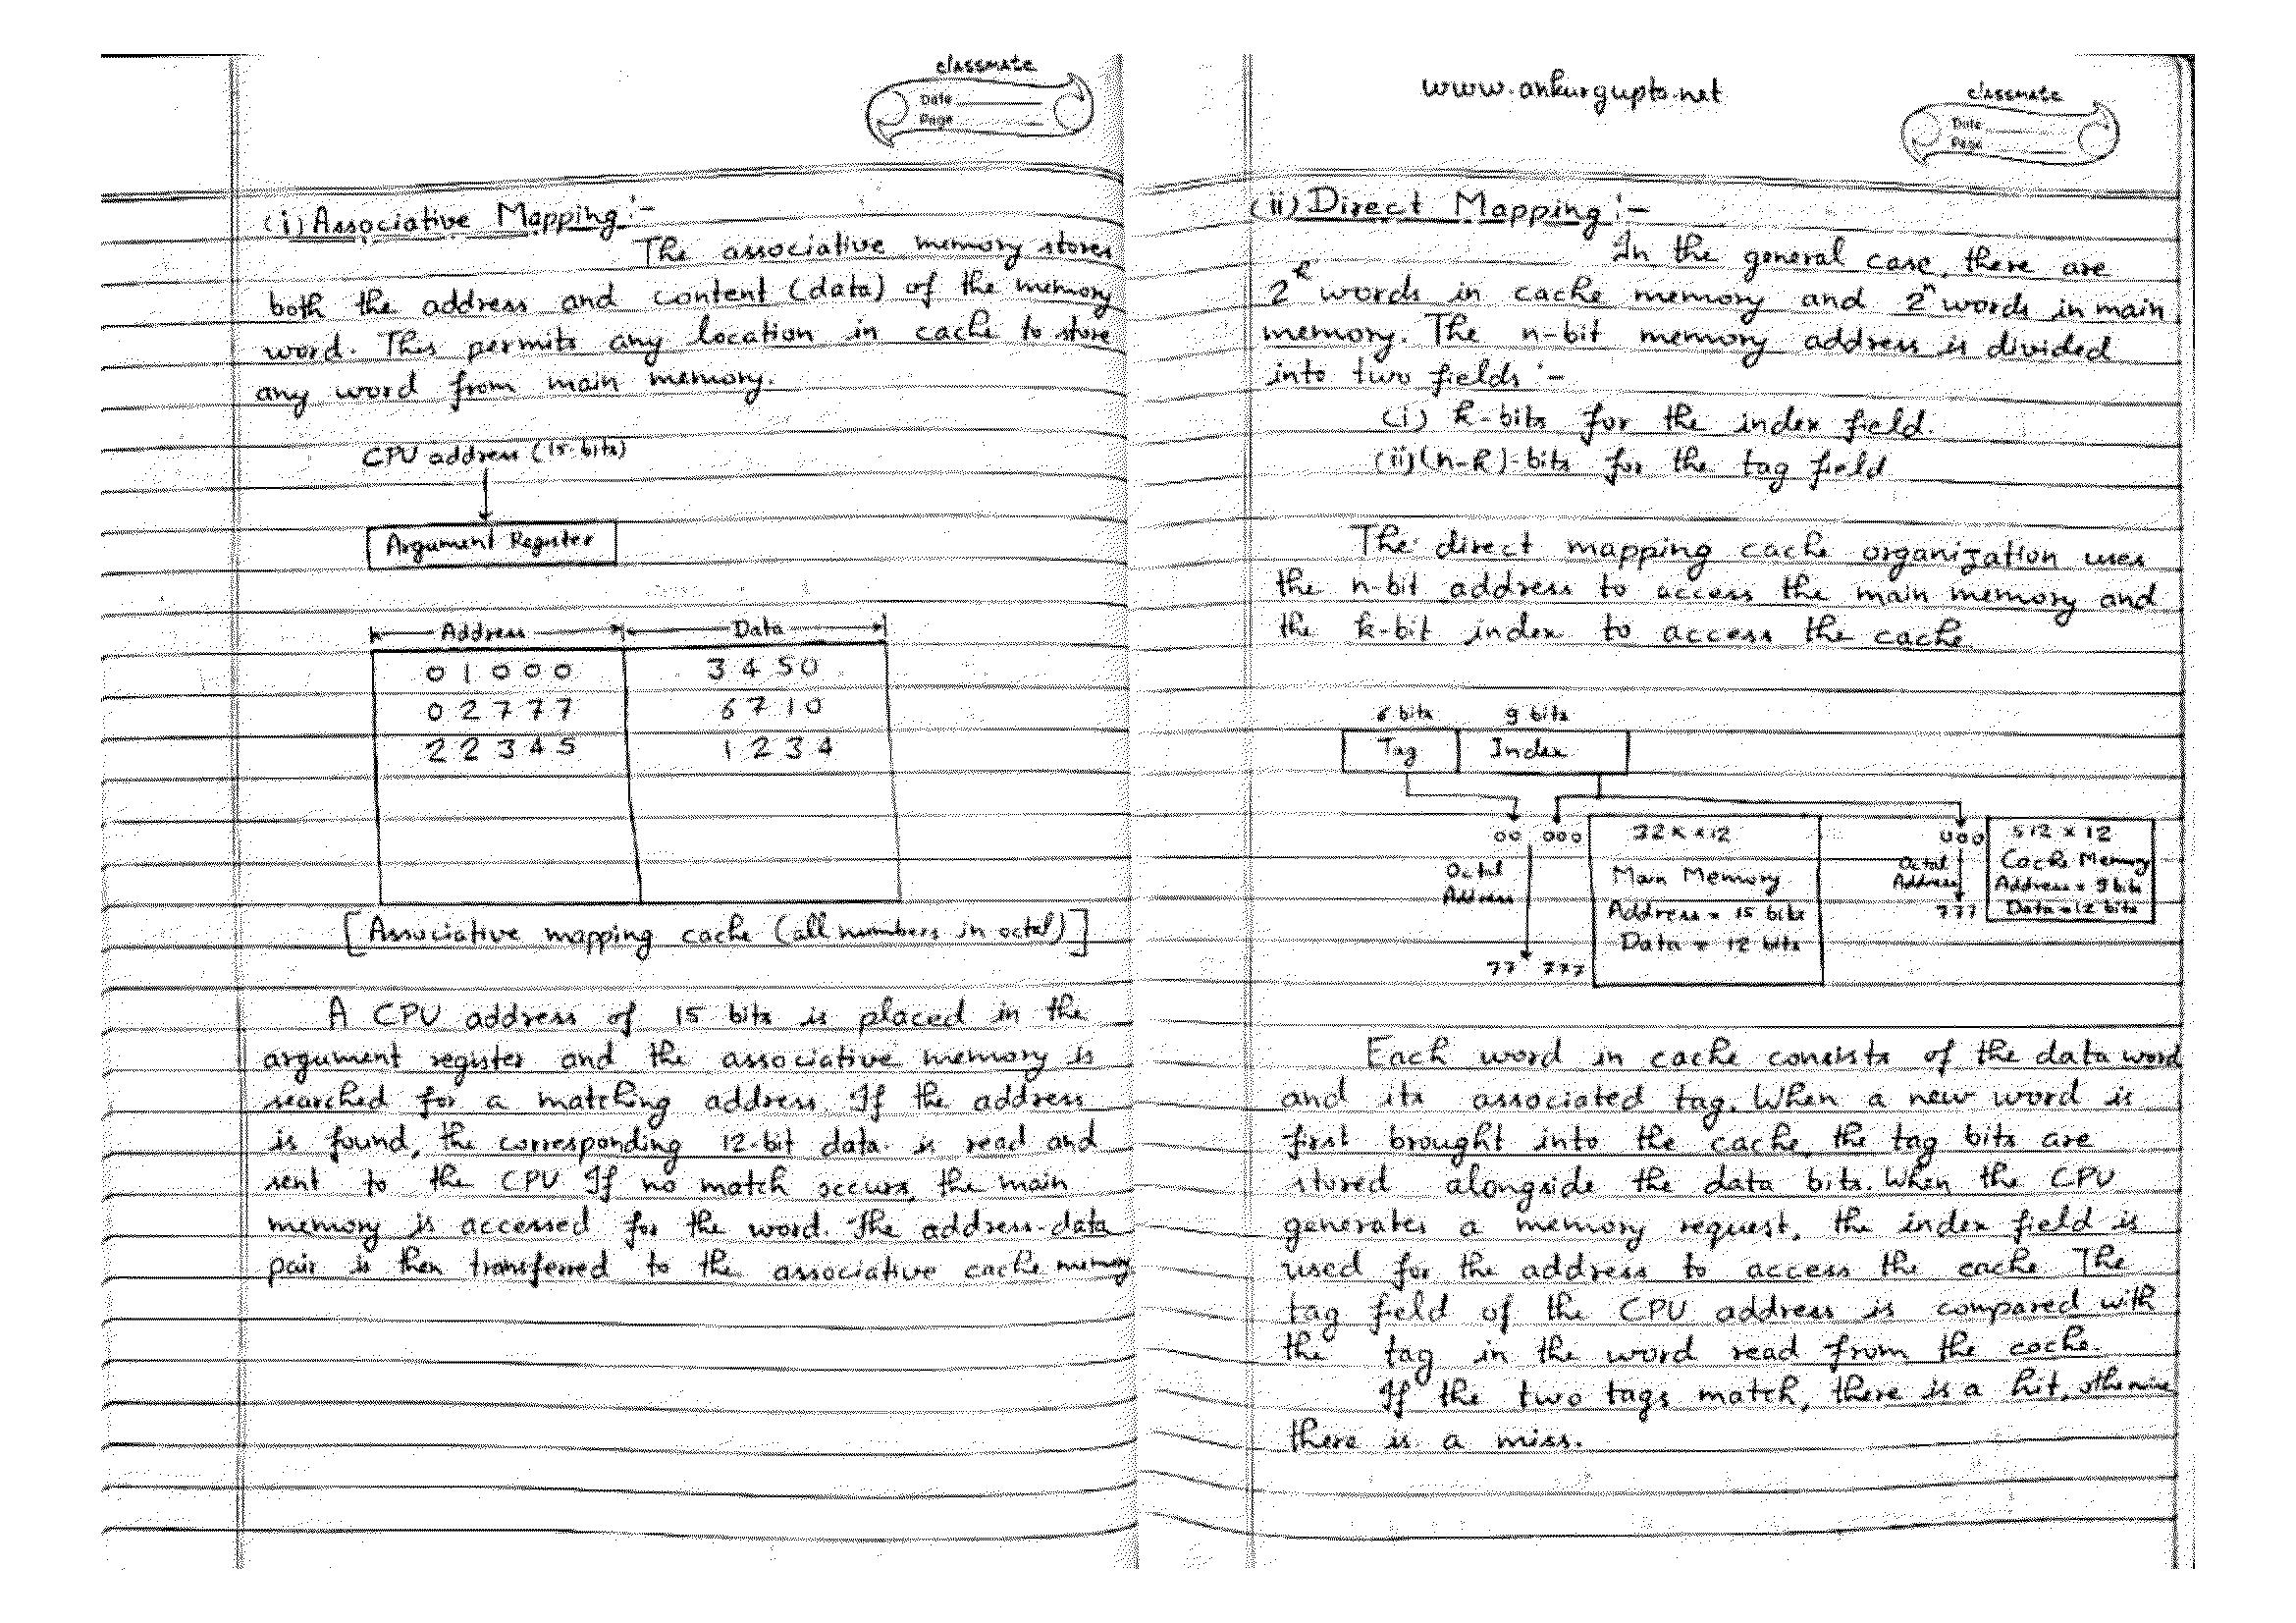 classmate
Date
Page
(i) Associative Mapping :-
The associative memory stores
both the address and content (data) of the memory
word. This permits any location in cache to store
any word from main memory.
CPU address (15-bits)
Argument Register
Address Data
0 1 0 0 0 3 4 5 0
0 2 7 7 7 6 7 1 0
2 2 3 4 5 1 2 3 4
[Associative mapping cache (all numbers in octal)]
A CPU address of 15 bits is placed in the
argument register and the associative memory is
searched for a matching address. If the address
is found, the corresponding 12-bit data is read and
sent to the CPU If no match occurs, the main
memory is accessed for the word. The address-data
pair is then transferred to the associative cache memory
www.ankurgupta.net
classmate
Date
Page
(ii) Direct Mapping :-
In the general case, there are
2^k words in cache memory and 2^n words in main
memory. The n-bit memory address is divided
into two fields :-
(i) k-bits for the index field.
(ii) (n-k)-bits for the tag field
The direct mapping cache organization uses
the n-bit address to access the main memory and
the k-bit index to access the cache.
6 bits 9 bits
Tag Index
00 000 32K x 12 000 512 x 12
Octal Address Main Memory Octal Address Cache Memory
Address = 15 bits Address = 9 bits
Data = 12 bits 777 Data = 12 bits
77 777
Each word in cache consists of the data word
and its associated tag. When a new word is
first brought into the cache, the tag bits are
stored alongside the data bits. When the CPU
generates a memory request, the index field is
used for the address to access the cache. The
tag field of the CPU address is compared with
the tag in the word read from the cache.
If the two tags match, there is a hit, otherwise
there is a miss.